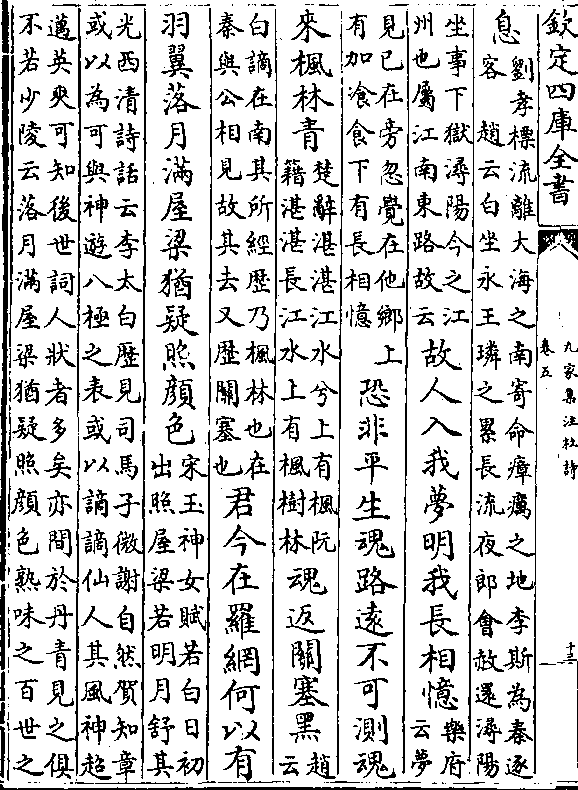 欽定四庫全書
九家集注杜詩
卷五
十三
息劉孝標流離大海之南寄命瘴癘之地李斯為秦逐
客 趙云白坐永王璘之累長流夜郎會赦還潯陽
坐事下獄潯陽今之江
州也屬江南東路故云故人入我夢明我長相憶樂府
云夢
見已在旁忽覺在他鄉上
有加飡食下有長相憶 恐非平生魂路遠不可測魂
來楓林青楚辭湛湛江水兮上有楓阮
籍湛湛長江水上有楓樹林魂返關塞黑趙
云
白謫在南其所經歴乃楓林也在
秦與公相見故其去又歴關塞也君今在羅網何以有
羽翼落月滿屋梁猶疑照顔色宋玉神女賦若白日初
出照屋梁若明月舒其
光西清詩話云李太白歴見司馬子微謝自然賀知章
或以為可與神遊八極之表或以謫謫仙人其風神超
邁英爽可知後世詞人狀者多矣亦間於丹青見之俱
不若少陵云落月滿屋梁猶疑照顔色熟味之百世之